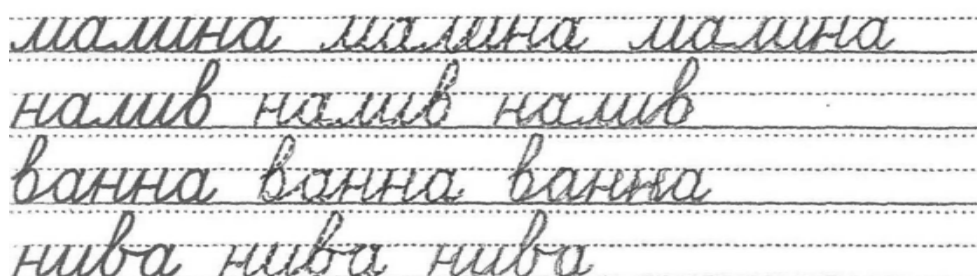 малина малина малина
налив налив налив
ванна ванна ванна
нива нива нива